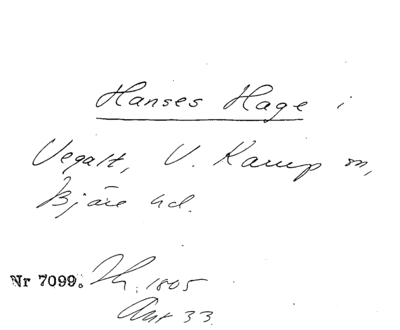 Hanses Hage i
Vegalt, V. Karup sn,
Bjäre hd.
Nr 7099. Th. 1805
Ant 33